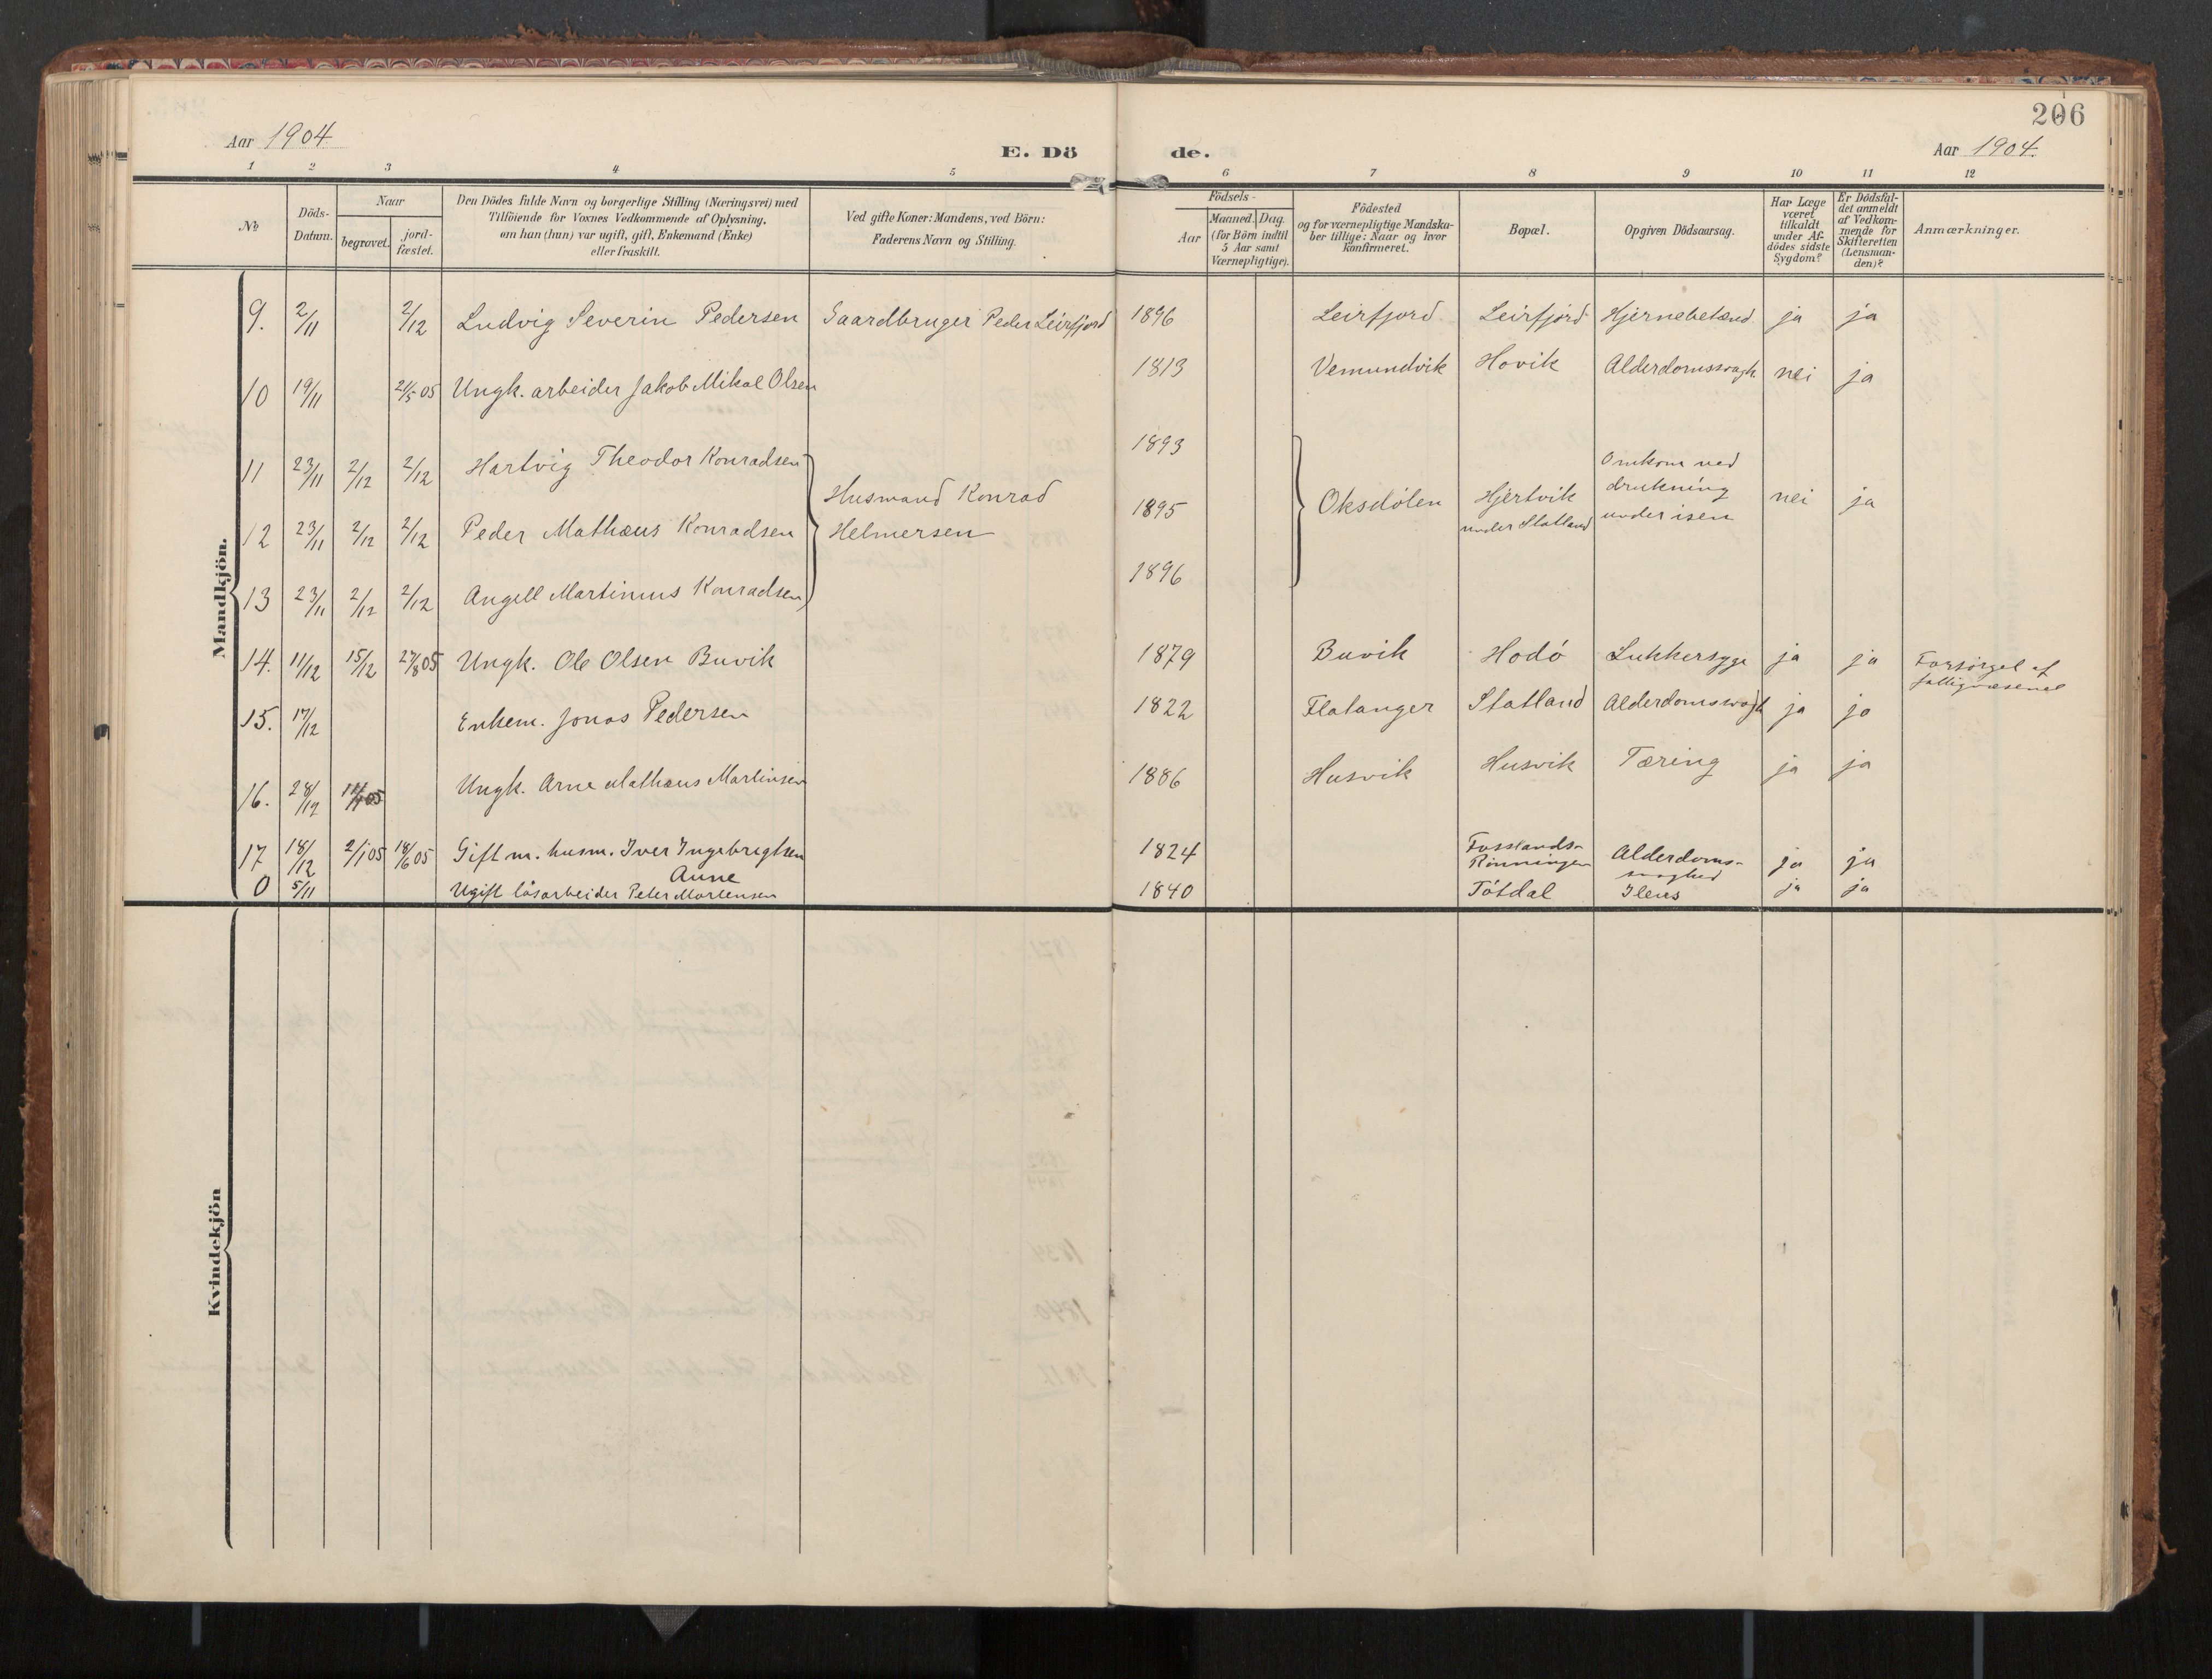 206
Aar 1904
E. Dö de.
Aar 1904.
1 2 3 4 5 6 7 8 9 10 11 12
No
Döds-
Datum.
Naar
begravet.
jord-
fæstet.
Den Dödes fulde Navn og borgerlige Stilling (Næringsvei) med
Tilföiende for Voxnes Vedkommende af Oplysning,
om han (hun) var ugift, gift, Enkemand (Enke)
eller fraskilt.
Ved gifte Koner: Mandens, ved Börn:
Faderens Navn og Stilling.
Födsels-
Aar
Maaned. Dag.
(for Börn indtil
5 Aar samt
Værnepligtige).
Födested
og for værnepligtige Mandska-
ber tillige: Naar og hvor
konfirmeret.
Bopæl.
Opgiven Dödsaarsag.
Har Læge
været
tilkaldt
under Af-
dödes sidste
Sygdom?
Er Dödsfal-
det anmeldt
af Vedkom-
mende for
Skifteretten
(Lensman-
den)?
Anmærkninger.
Mandkjön.
9. 2/11 2/12 Ludvig Severin Pedersen Gaardbruger Peder Leirfjord 1896 Leirfjord Leirfjord Hjernebetænd. ja ja
10 19/11 21/5 05 Ungk. arbeider Jakob Mikal Olsen 1813 Vemundvik Hovik Alderdomssvagh. nei ja
11 23/11 2/12 2/12 Hartvig Theodor Konradsen 1893
Husmand Konrad
Helmersen
Oksdölen
Hjertvik
under Statland
Omkom ved
drukning
under isen
nei ja
12 23/11 2/12 2/12 Peder Mathæus Konradsen 1895
13 23/11 2/12 2/12 Angell Martinius Konradsen 1896
14. 11/12 15/12 27/8 05 Ungk. Ole Olsen Buvik 1879 Buvik Hodö Sukkersyge ja ja Forsörget af
fattigvæsenet
15. 17/12 Enkem. Jonas Pedersen 1822 Flatanger Statland Alderdomssvagh ja ja
16. 28/12 05 Ungk. Arne Mathæus Martinsen 1886 Husvik Husvik Tæring ja ja
17 18/12 2/1 05 18/6 05 Gift m. husm. Iver Ingebrigtsen
Aune
1824 Fosslands-
Rönningen
Alderdoms-
svaghed
ja ja
0 5/11 Ugift lösarbeider Peter Mortensen 1840 Tötdal Ileus ja ja
Kvindekjön